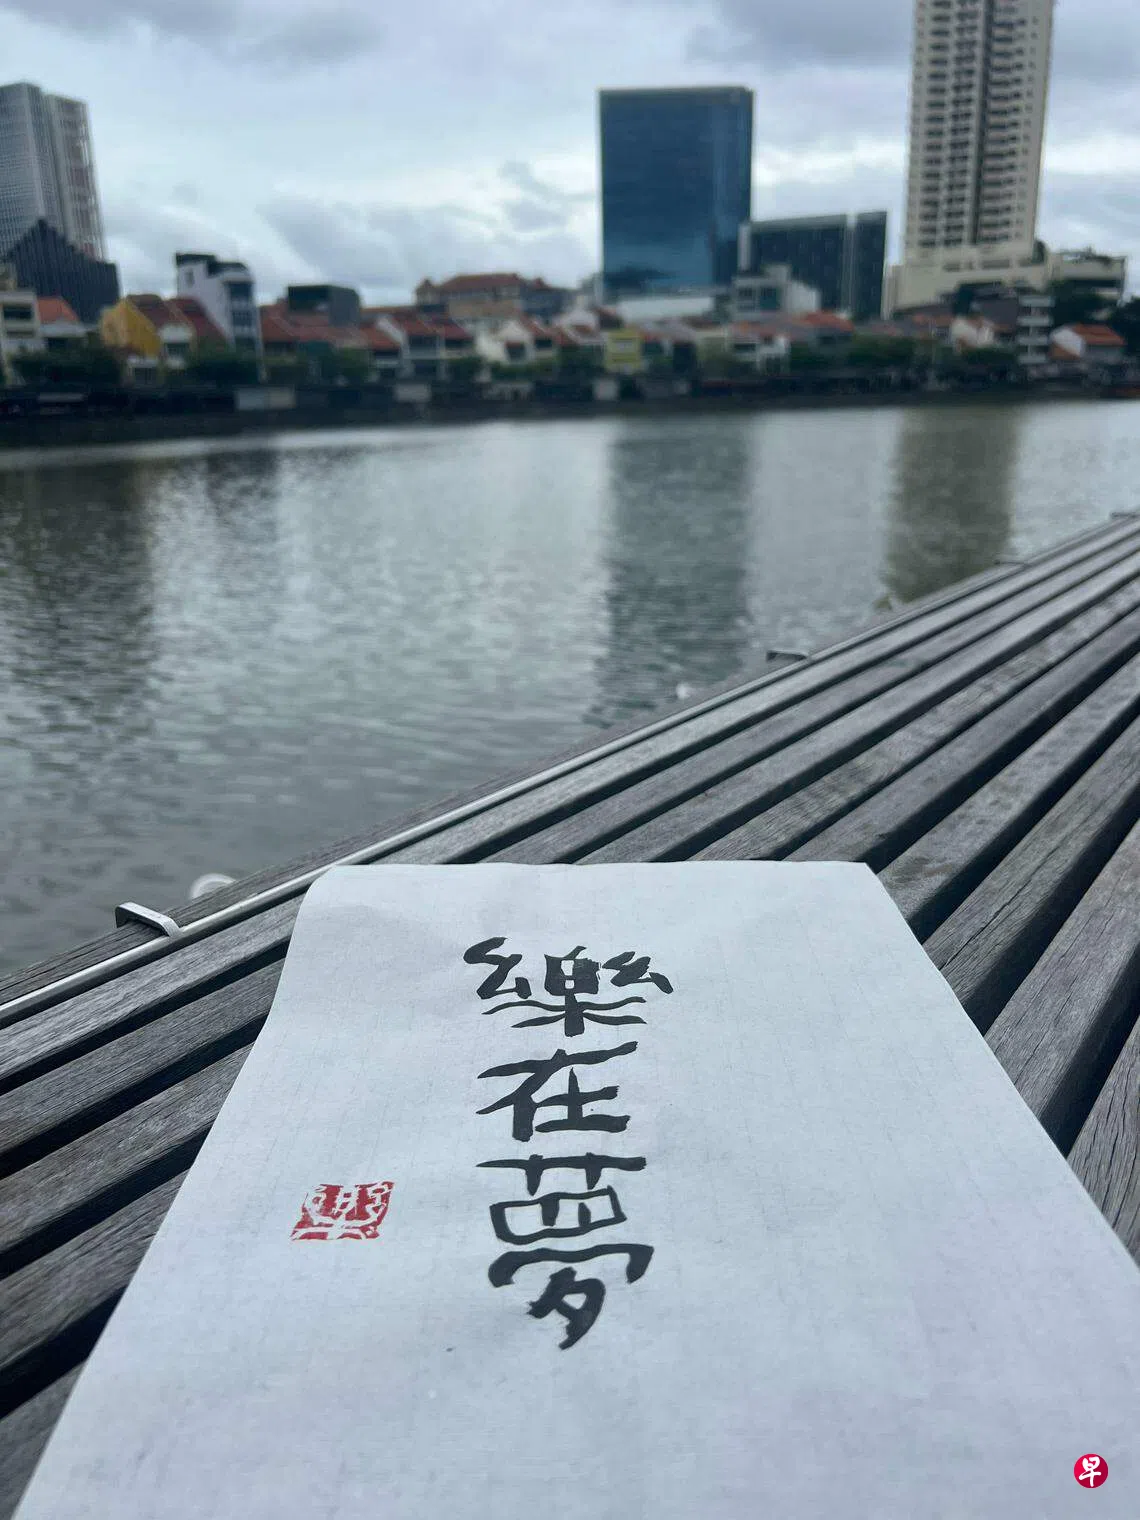 樂在夢
早